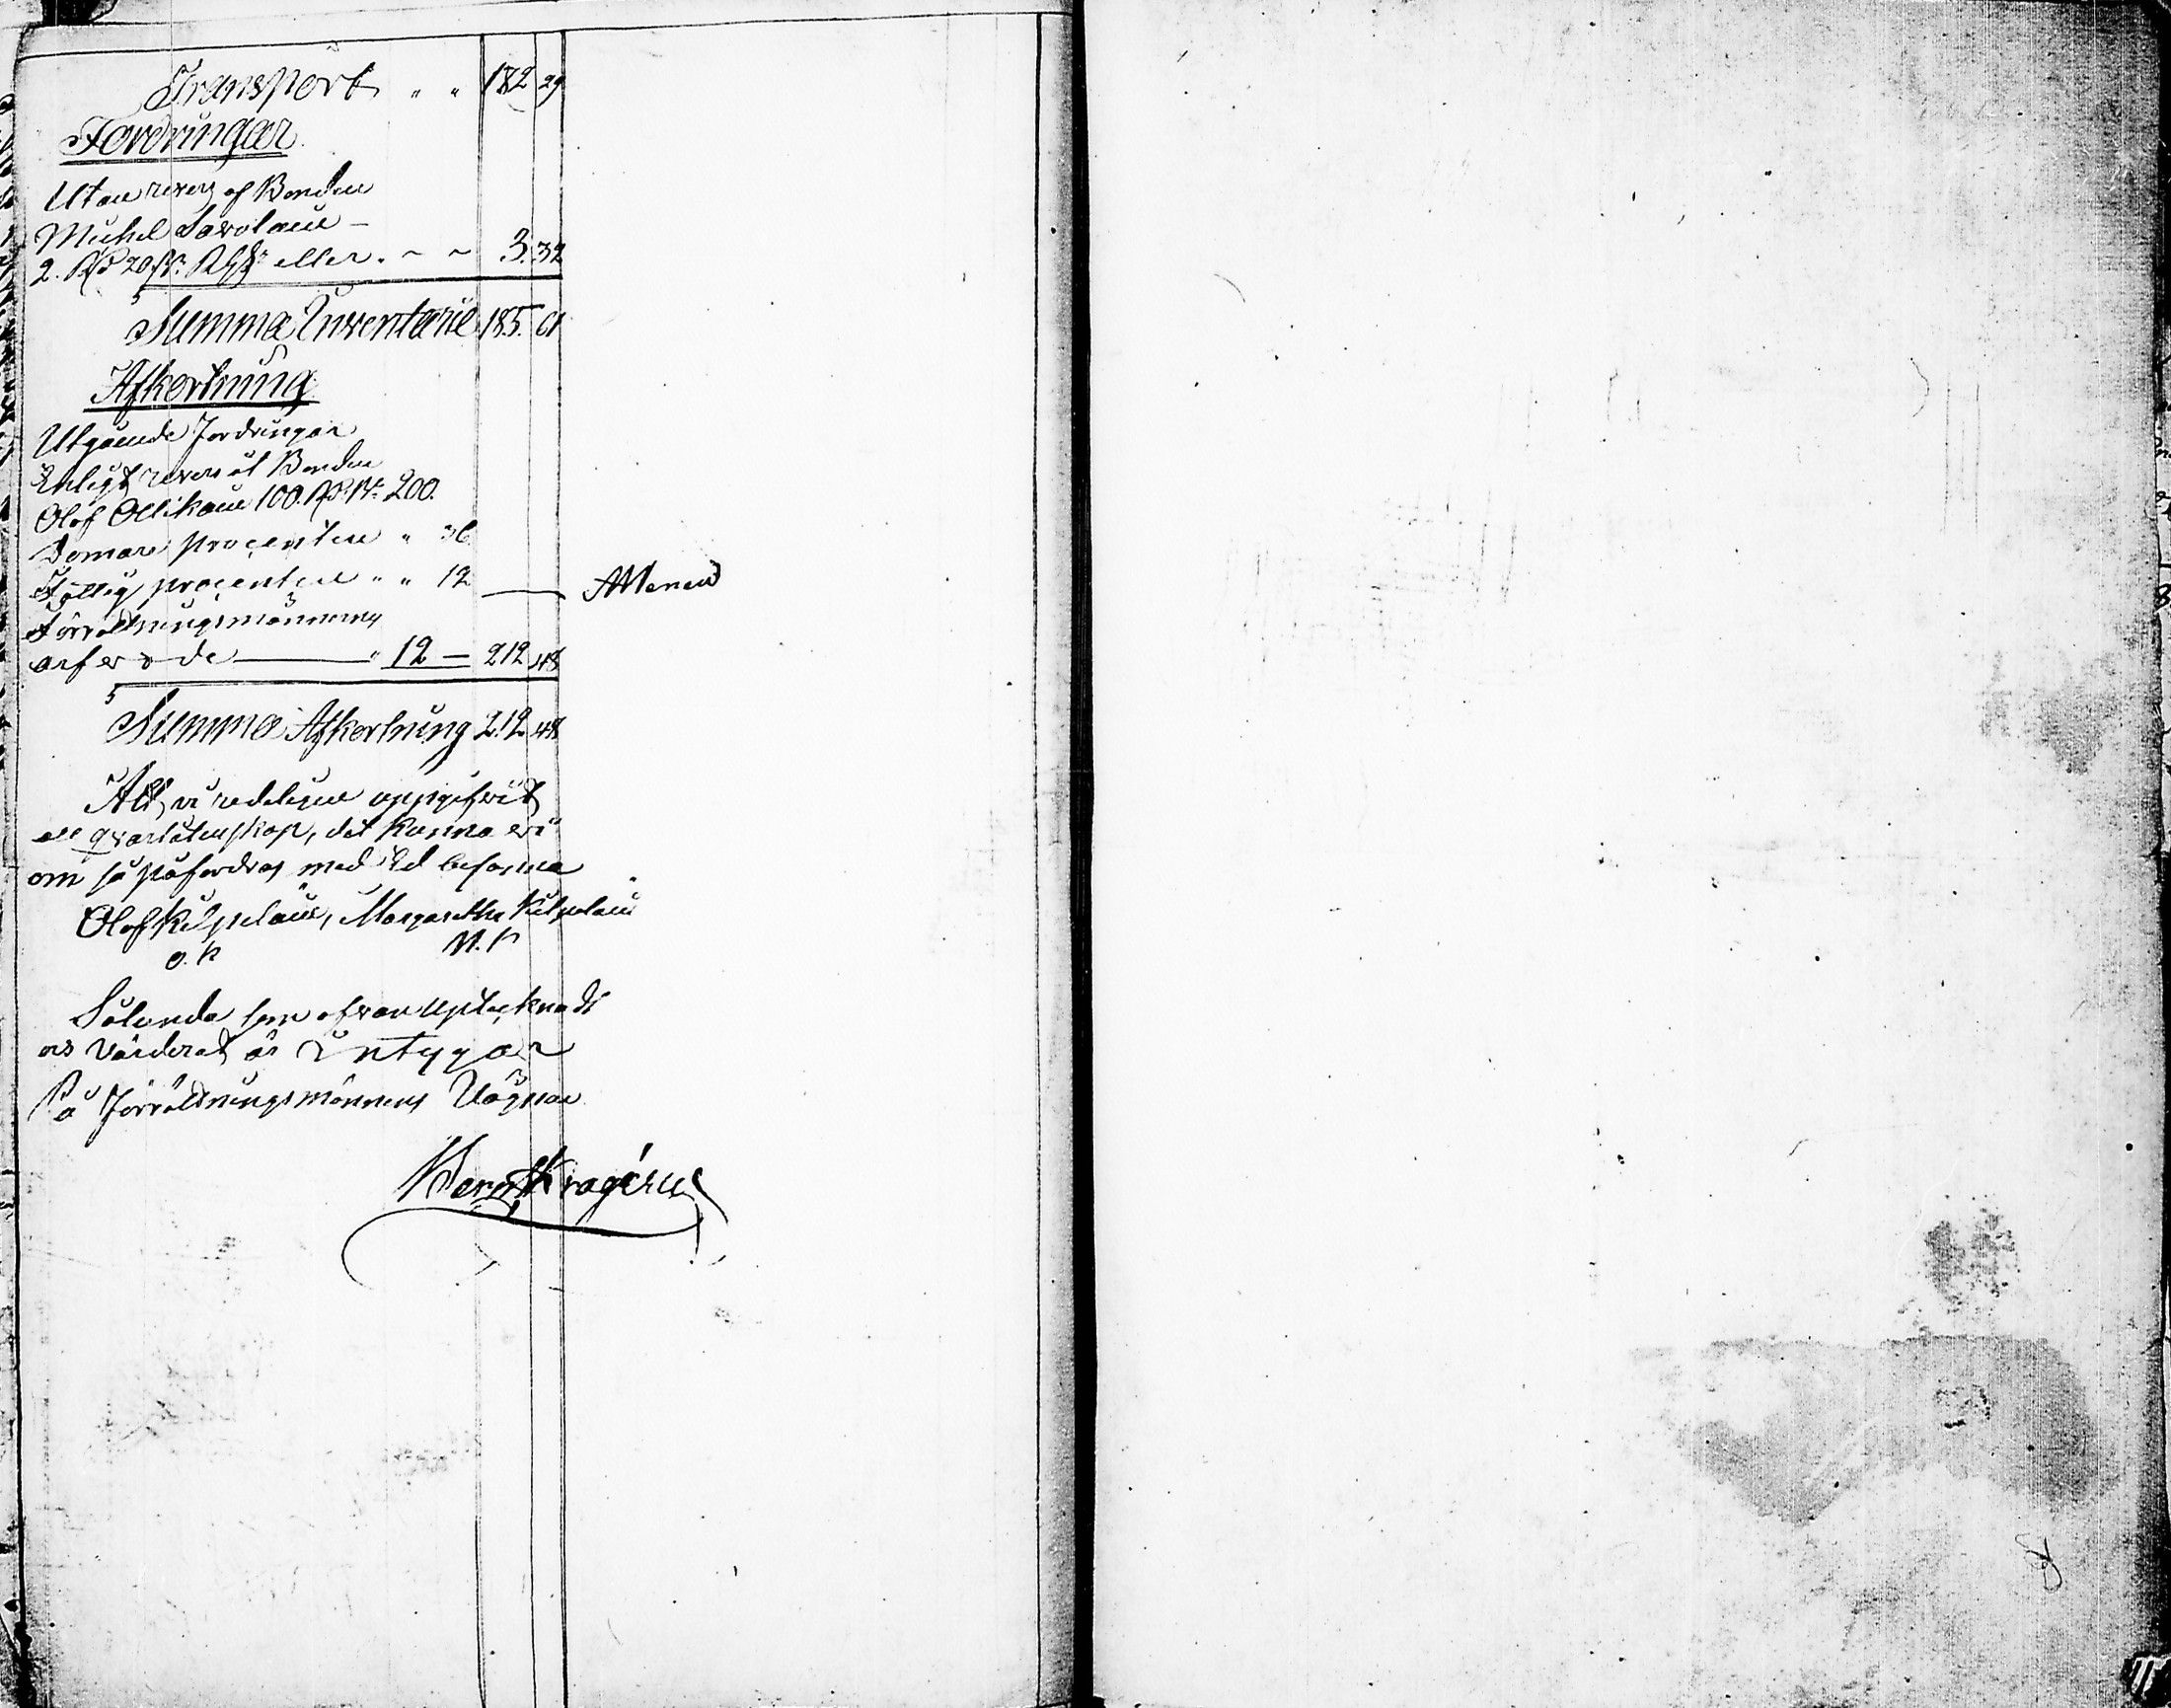 Transport " " 182 29
Fordringar
Utan revers af Bonden
Michel Savolain –
2. 20 eller . ~ ~ 3. 32
Summa Inventarie 185. 61
Afkortning
Utgående fordringar
Enligt revers åt Bonden
Olof Ollikain 100. 200.
Domare procenten " 36
Fattig procenten " " 12
Förrättningsmännens
arfvode " 12 – 212 48
Summa Afkortning 212 48
Att, vi redeligen uppgifvit
all qvarlåtenskap, det kunna vi
om så påfordras med Ed besanna
Olof Kilpelain, Margaretha Kilpelain
O. K M. K
Sålunda som ofvan Uptecknadt
ock Värderat är Intygar
På förrättningsmännens Vägnar